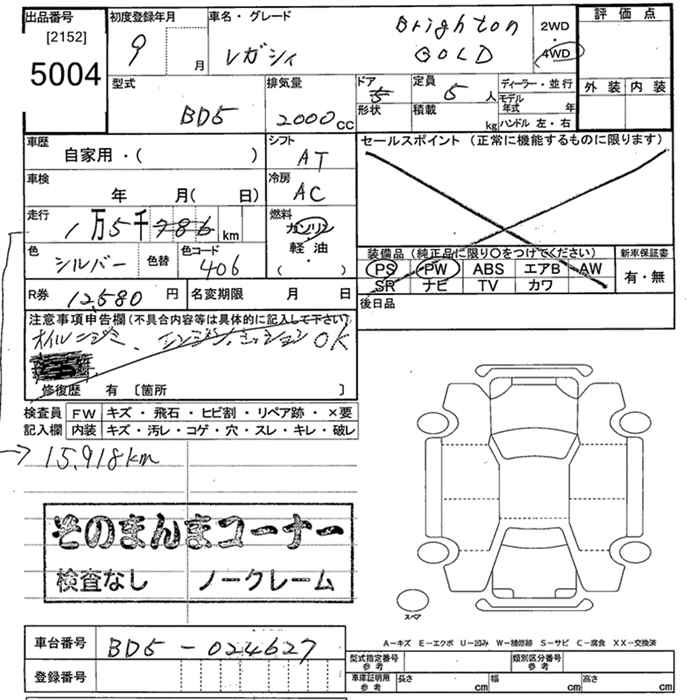 出品番号
[2152]
5004
初度登録年月
9 月
車名・グレード
レガシィ
Brighton
GOLD
2WD
・
4WD
評価点
外装 内装
型式
BD5
排気量
2000 cc
ドア
5
形状
定員
5 人
積載
kg
ディーラー・並行
モデル年式 年
ハンドル 左・右
車歴
自家用・( )
シフト
AT
セールスポイント (正常に機能するものに限ります)
車検
年 月( 日)
冷房
AC
走行
1万5千786 km
燃料
ガソリン
軽油
( ・ )
色
シルバー
色替
色コード
406
装備品 (純正品に限り〇をつけてください)
PS PW ABS エアB AW
SR ナビ TV カワ
新車保証書
有・無
R券
12,580 円
名変期限 月 日
後日品
注意事項申告欄(不具合内容等は具体的に記入して下さい)
オイルニジミ、エンジン,ミッション OK
修復歴 有 [箇所 ]
検査員 FW キズ・飛石・ヒビ割・リペア跡・×要
記入欄 内装 キズ・汚レ・コゲ・穴・スレ・キレ・破レ
15,918km
そのまんまコーナー
検査なし ノークレーム
スペア
A-キズ E-エクボ U-凹み W-補修跡 S-サビ C-腐食 XX-交換済
車台番号
BD5-024627
登録番号
型式指定番号
参考
類別区分番号
参考
車庫証明用
参考
長さ cm
幅 cm
高さ cm